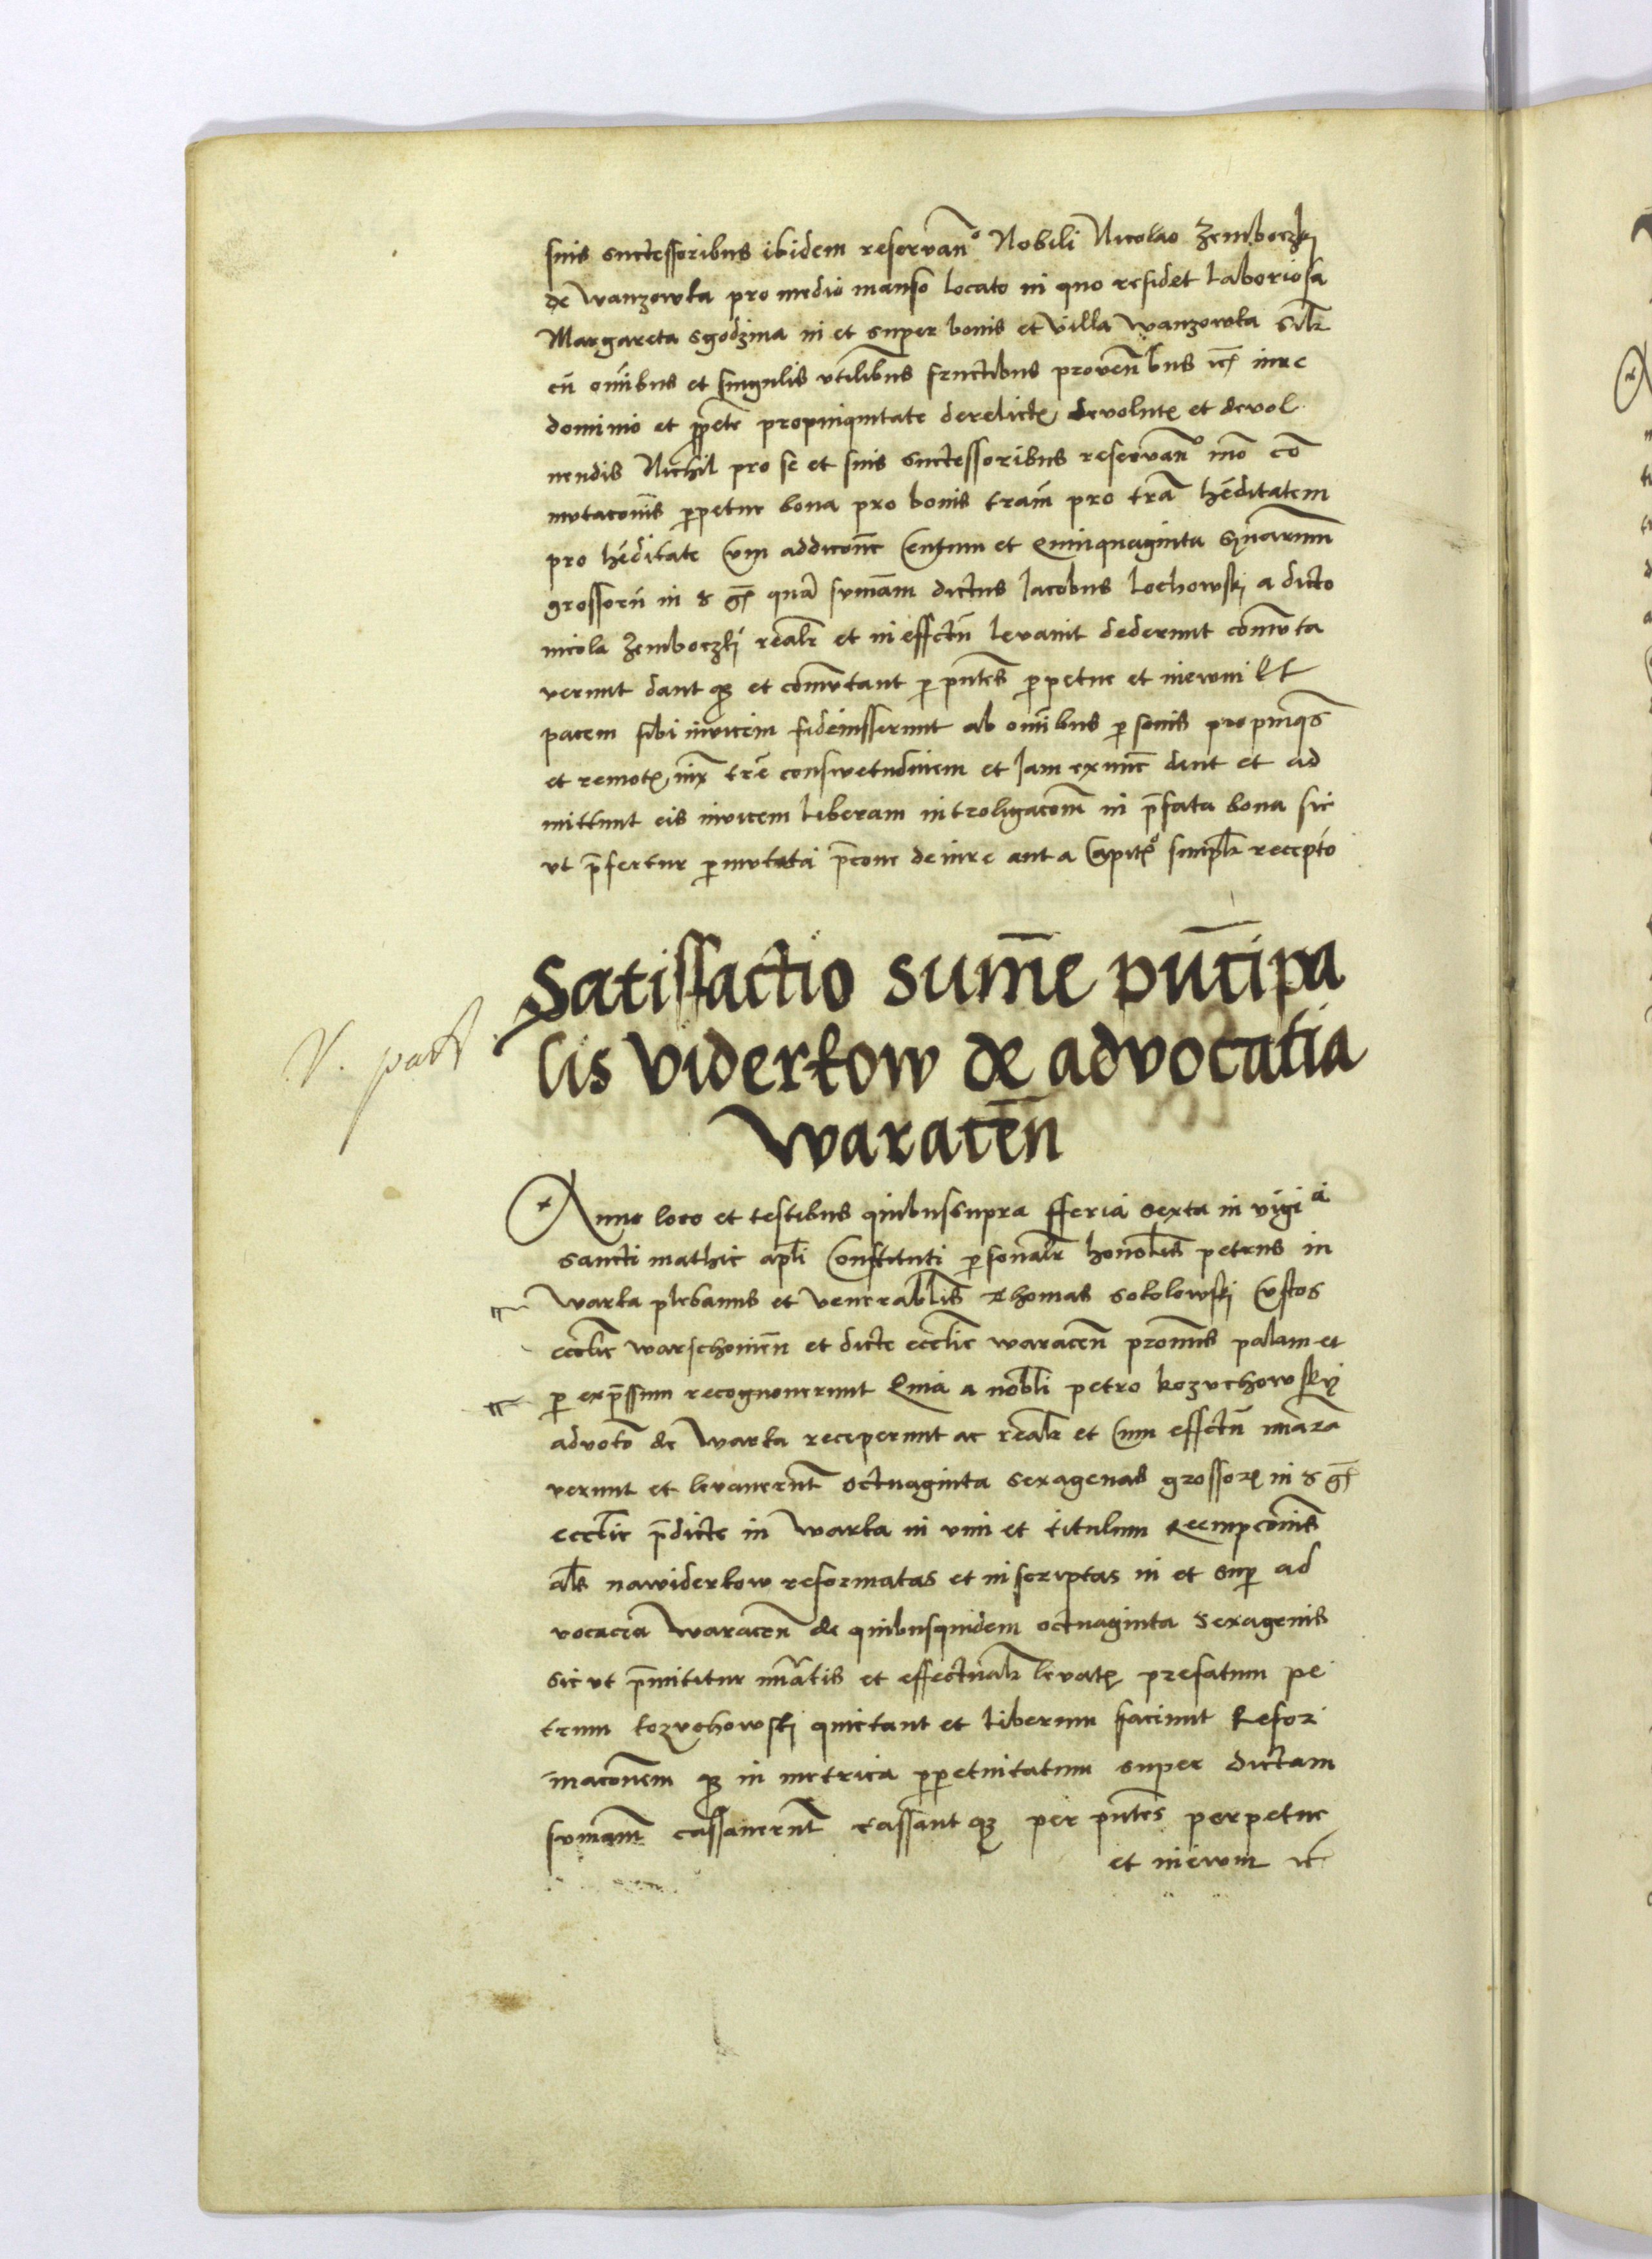 suis successoribus ibidem reservan° Nobili Nicolao Zemboczki
de Wanzowka pro medio manso locato in quo residet laboriosa
Margareta sgodzina in et super bonis et villa Wanzowka
cū om̄ibus et singulis vtilibus fructibus proven̄bus iure
dominio et propinquitate derelict devolut et devol
uendis Nichil pro se et suis successoribus reservan° mō cō
mvtacōnis ꝑpetue bona pro bonis tram̄ pro tra hēditatem
pro hēditate Cum addicōne Centum et Quinquaginta
grossorū in quā sum̄am dictus Jacobus Lochowski a dicto
nicola Zemboczki realr et in effctū levavit dederunt com̄vta
verunt dant qꝫ et com̄vtant ꝑ pn̄tes ꝑpetue et in ewm
pacem sibi invicem fideiusserunt ab om̄ibus ꝑsonis propinqs
et remot trē conswetudinem et Jam ex nunc dant et ad
mittunt eis invicem liberam introligacōm in p̄fata bona sic
vt p̄fertur ꝑmvtata de iure recepto
Satisfactio sum̄e prīcipa
lis viderkow de advocatia
Waracen̄
V. pact
Anno loco et testibus quibus supra fferia sexta in vigi a
sancti mathie apli Constituti ꝑsonalr honoblis petrus in
Warka plebanus et venerablis Thomas Sokolowski Custos
ecclie warschouien̄ et dicte ecclie waracen̄ palam et
ꝑ exp̄ssum recognouerunt Quia a nobli petro kozvchowsky
advoto de Warka receperunt ac realr et Cum effctū
verunt et levauerūt octuaginta sexagenas grossor in
ecclie p̄dicte in Warka in vim et titulum Reempcōnis
als nawiderkow reformatas et inscriptas in et suꝑ ad
vocaciā Waracen̄ de quibusquidem octuaginta sexagenis
sic vt p̄mittitur et effectualr levat prefatum pe
trum kozvchowski quictant et liberum faciunt Refor
macōnem qꝫ in metrica ꝑpetuitatum super dictam
sum̄am cassauerūt cassant qꝫ per pn̄tes perpetue
et in ewm